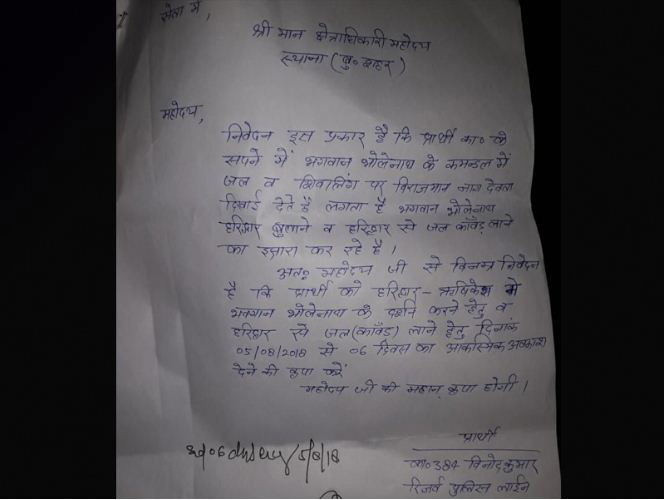 सेवा में,
श्री मान क्षेत्राधिकारी महोदय
स्याना (बु०शहर)
महोदय,
निवेदन इस प्रकार है कि प्रार्थी का० के
सपने में भगवान भोलेनाथ के कमन्डल में
जल व शिवलिंग पर विराजमान नाग देवता
दिखाई देते है लगता है भगवान भोलेनाथ
हरिद्वार बुलाने व हरिद्वार से जल काँवड़ लाने
का इशारा कर रहे है।
अतः महोदय जी से विनम्र निवेदन
है कि प्रार्थी को हरिद्वार - ऋषिकेश में
भगवान भोलेनाथ के दर्शन करने हेतु व
हरिद्वार से जल (काँवड) लाने हेतु दिनांक
05/08/2018 से 06 दिवस का आकस्मिक अवकाश
देने की कृपा करें
महोदय जी की महान् कृपा होगी।
प्रार्थी
का० 384 विनोद कुमार
रिजर्व पुलिस लाईन
06 days 5/8/18